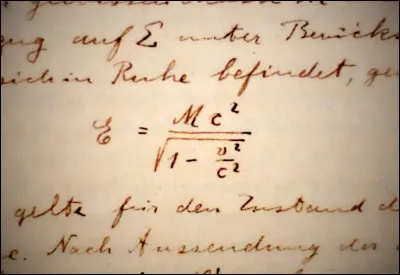 zug auf Σ unter Berücks
sich in Ruhe befindet, ge
E = M c² / √(1 - v²/c²)
gelte für den Zustand d
c. Nach Aussendung der